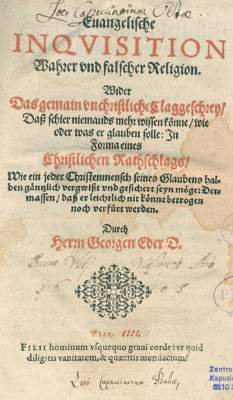 Loci Capucinorum
Euangelische
INQVISITION
Wahrer vnd falscher Religion.
Wider
Das gemain vnchristliche Claggeschrey/
Daß schier niemands mehr wissen könne/wie
oder was er glauben solle: In
Forma eines
Christlichen Rathschlags/
Wie ein jeder Christenmensch seines Glaubens hal-
ben gäntzlich vergwißt vnd gesichert seyn möge: Der-
massen/daß er leichtlich nit könne betrogen
noch verfürt werden.
Durch
Herrn Georgen Eder D.
PSAL. IIII.
FILII hominum vsquequo graui corde? vt quid
diligitis vanitatem, & quæritis mendacium?
Loci Capucinorum
Zentra
Kapuzi